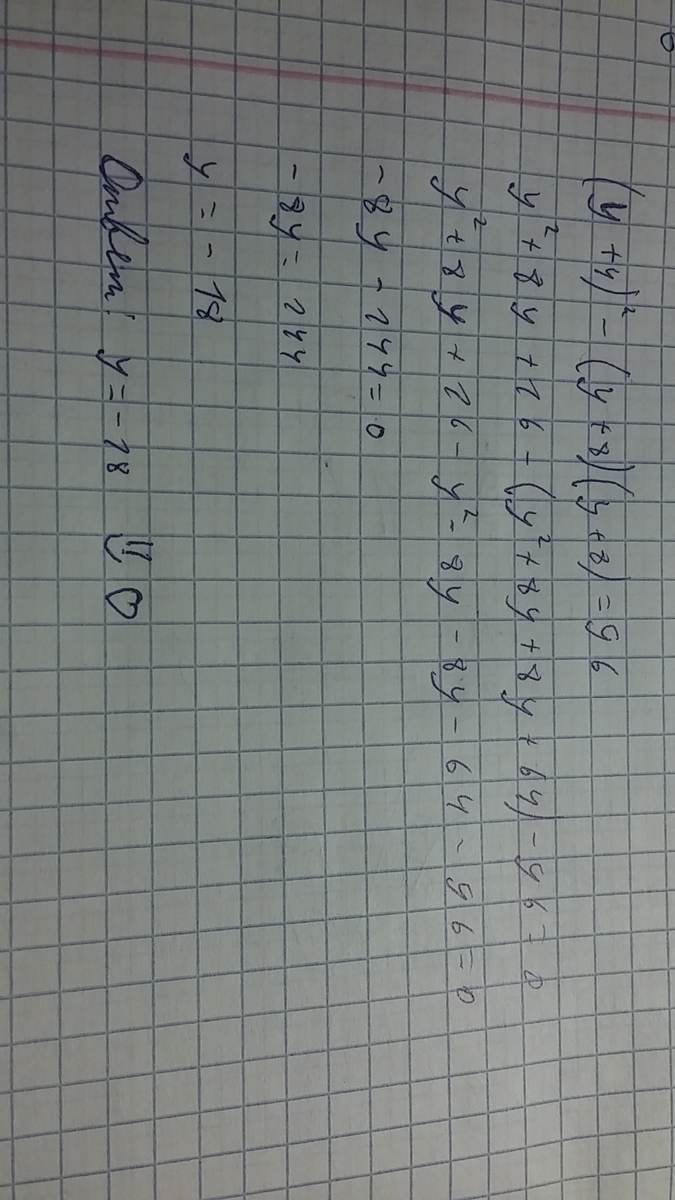 (y+4)² - (y+8)(y+8) = 96
y² + 8y + 16 - (y² + 8y + 8y + 64) - 96 = 0
y² + 8y + 16 - y² - 8y - 8y - 64 - 96 = 0
-8y - 144 = 0
-8y = 144
y = -18
Ответ: y = -18